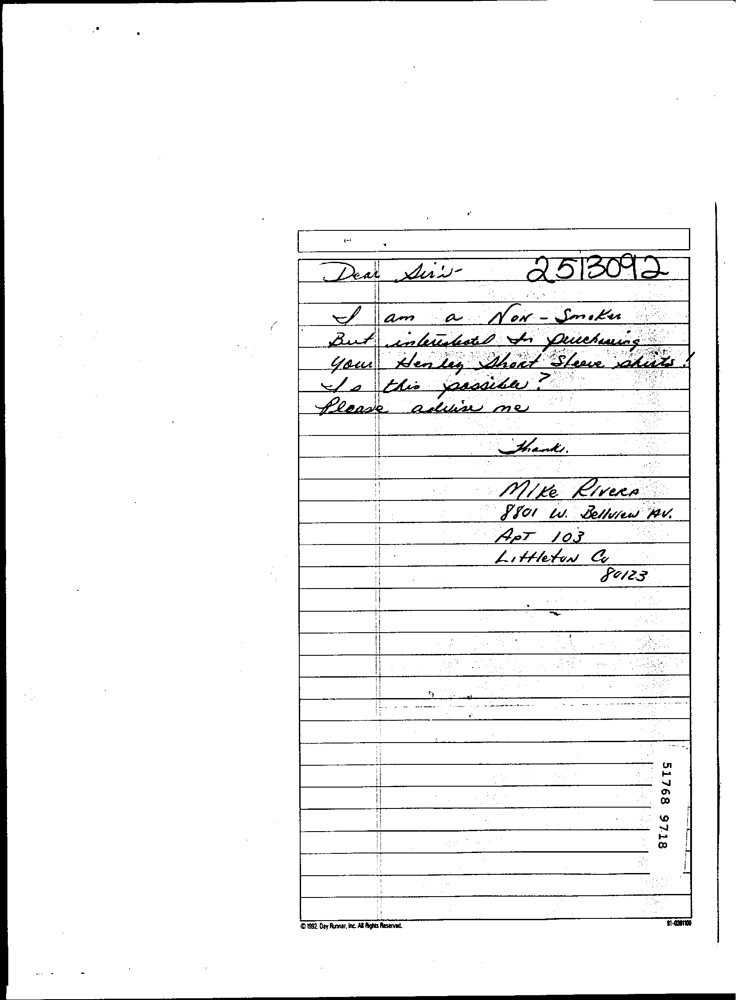 Dear Sir's- 2513092
I am a Non-Smoker
But interestested in purchasing
your Henley Short Sleeve shirts!
Is this possible?
Please advise me
Thanks.
Mike Rivera
8801 W. Bellview Av.
Apt 103
Littleton Co
80123
51768 9718
© 1992 Day Runner, Inc. All Rights Reserved.